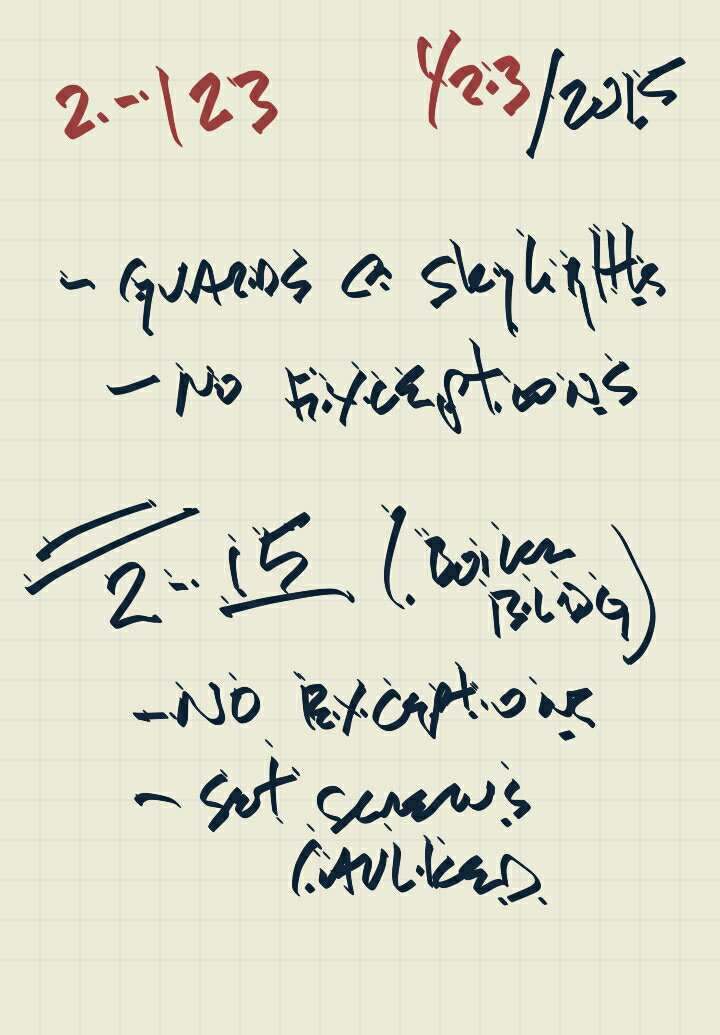 2-123 1/23/2015
- GUARDS @ skylights
- NO Exceptions
2-15 (Boiler
BLDG)
- NO Exceptions
- Set screws
CAULKED